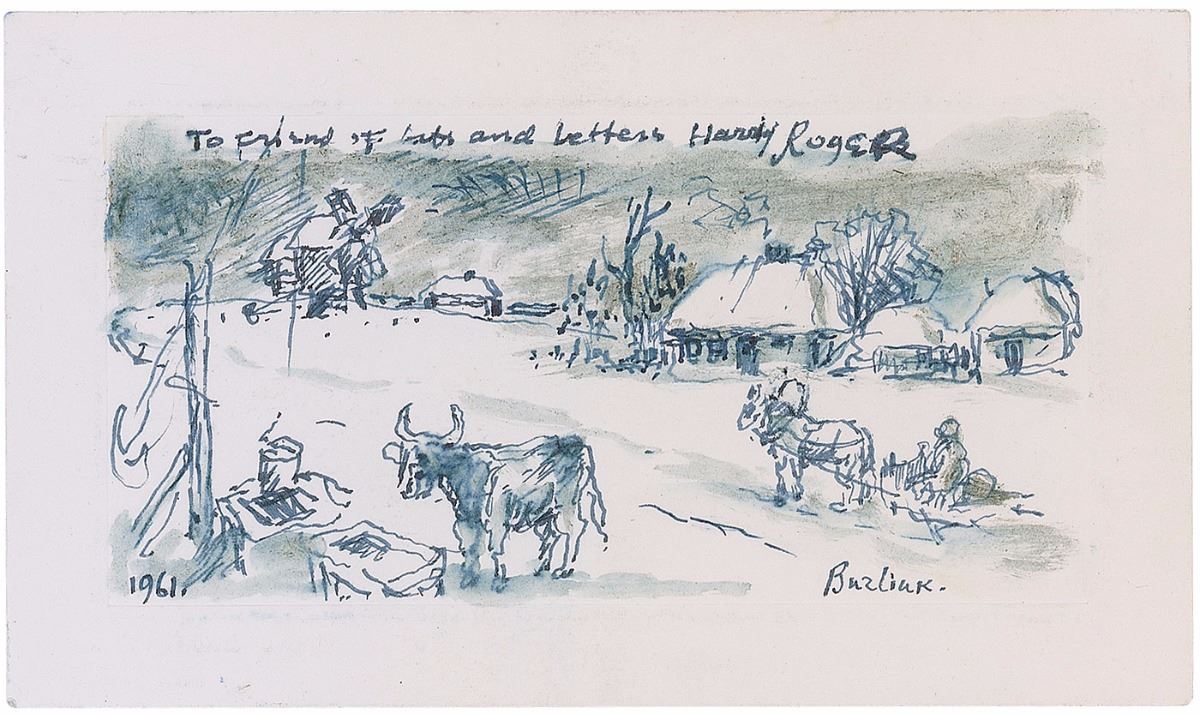 To friend of arts and Letters Hardy Roger
1961.
Burliuk.